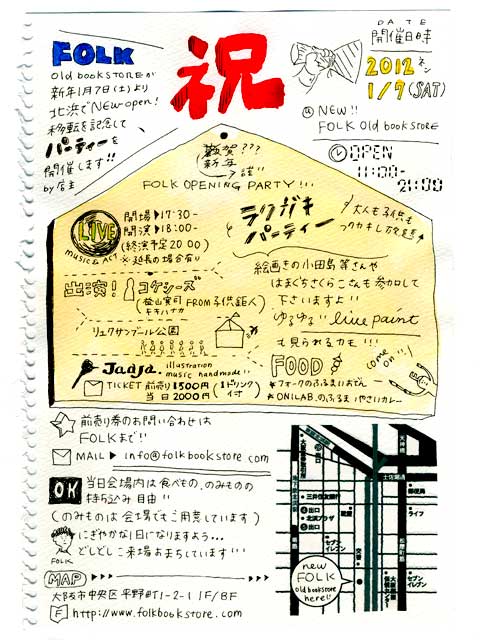 FOLK
old bookSTOREが
新年1月7日(土)より
北浜でNEW-open!
移転を記念して
パーティーを
開催します!!
by店主
祝
DATE
開催日時
2012 ネン
1/7(SAT)
@NEW!!
FOLK old bookSTORE
OPEN
11:00-
21:00
謹賀???
新年
FOLK OPENING PARTY!!!
LIVE
music & Act
開場▶17:30-
開演▶18:00-
(終演予定20:00)
※延長の場合有り
ラクガキ
と
パーティー
大人も子供も
ラクガキし放題
出演!
コケシーズ
FROM 子供鉅人)
キキハナカ
リュクサンブール公園
絵画きの小田島等さんや
はまぐちさくらこさんも参加して
下さいますよ!!
ゆるゆる!! live paint
も見られるカモ!!!
Jadja.
illustration
music handmade!!
TICKET 前売り1500円(1ドリンク付)
当日2000円
FOOD
come on!!!
※フォークのふるまいおでん
※ONILAB.のふるまいやさいカレー
前売り券のお問い合わせは
FOLKまで!!
MAIL▶info@folkbookstore.com
OK
当日会場内は食べもの、のみものの
持ち込み自由!!
(のみものは会場でもご用意しています)
にぎやかな1日になりますよう…
どしどしご来場お待ちしています!!!
FOLK
MAP
大阪市中央区平野町1-2-1 1F/BF
http://www.folkbookstore.com
天神橋
土佐堀通
郵便局
三井住友銀行
ライフ
出口
北浜プラザ
出口
堺筋
セブン
イレブン
松屋町筋
交番
セブン
イレブン
new
FOLK
old bookstore
here!!